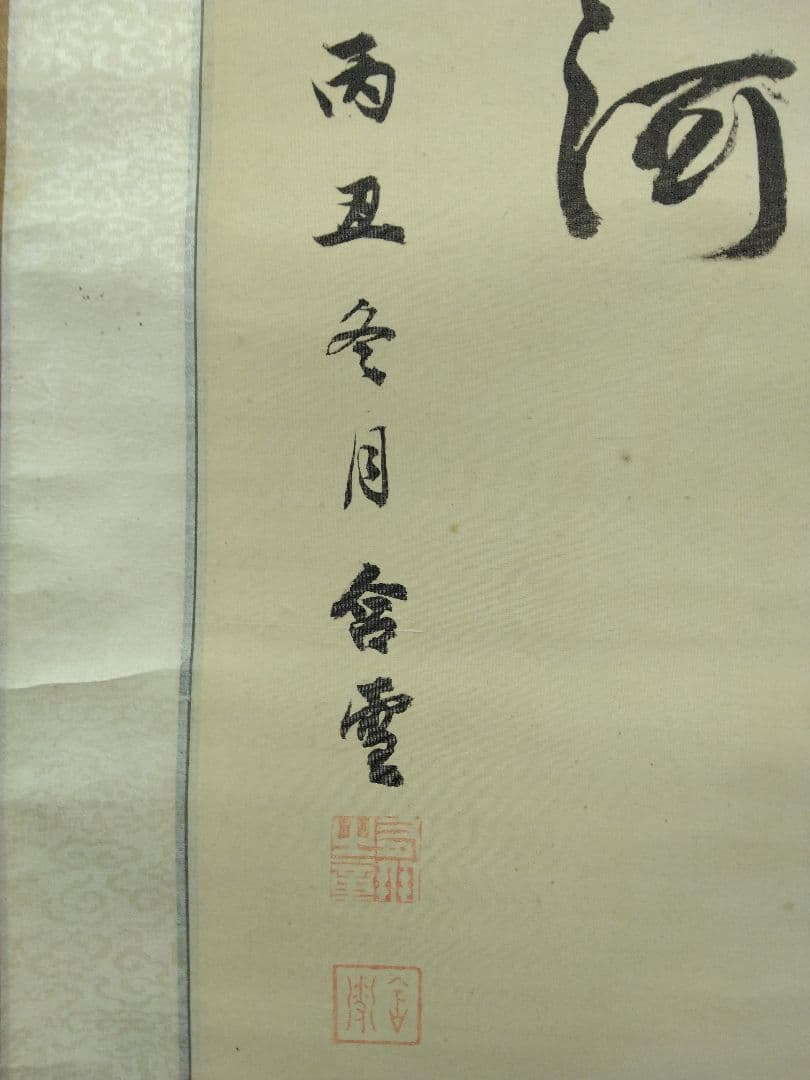 河
丙丑冬月含雲